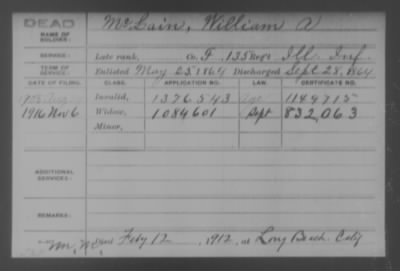 DEAD
NAME OF SOLDIER:
McLain, William A
SERVICE:
Late rank, Co. F, 135 Reg't Ill. Inf.
TERM OF SERVICE:
Enlisted May 25 1864 Discharged Sept 28, 1864
DATE OF FILING. CLASS. APPLICATION NO. LAW. CERTIFICATE NO.
Invalid, 1376543 1184715
1916 Nov 6 Widow, 1084601 Sept 832,063
Minor,
ADDITIONAL SERVICES:
REMARKS:
died Feby 12, 1912, at Long Beach. Calif